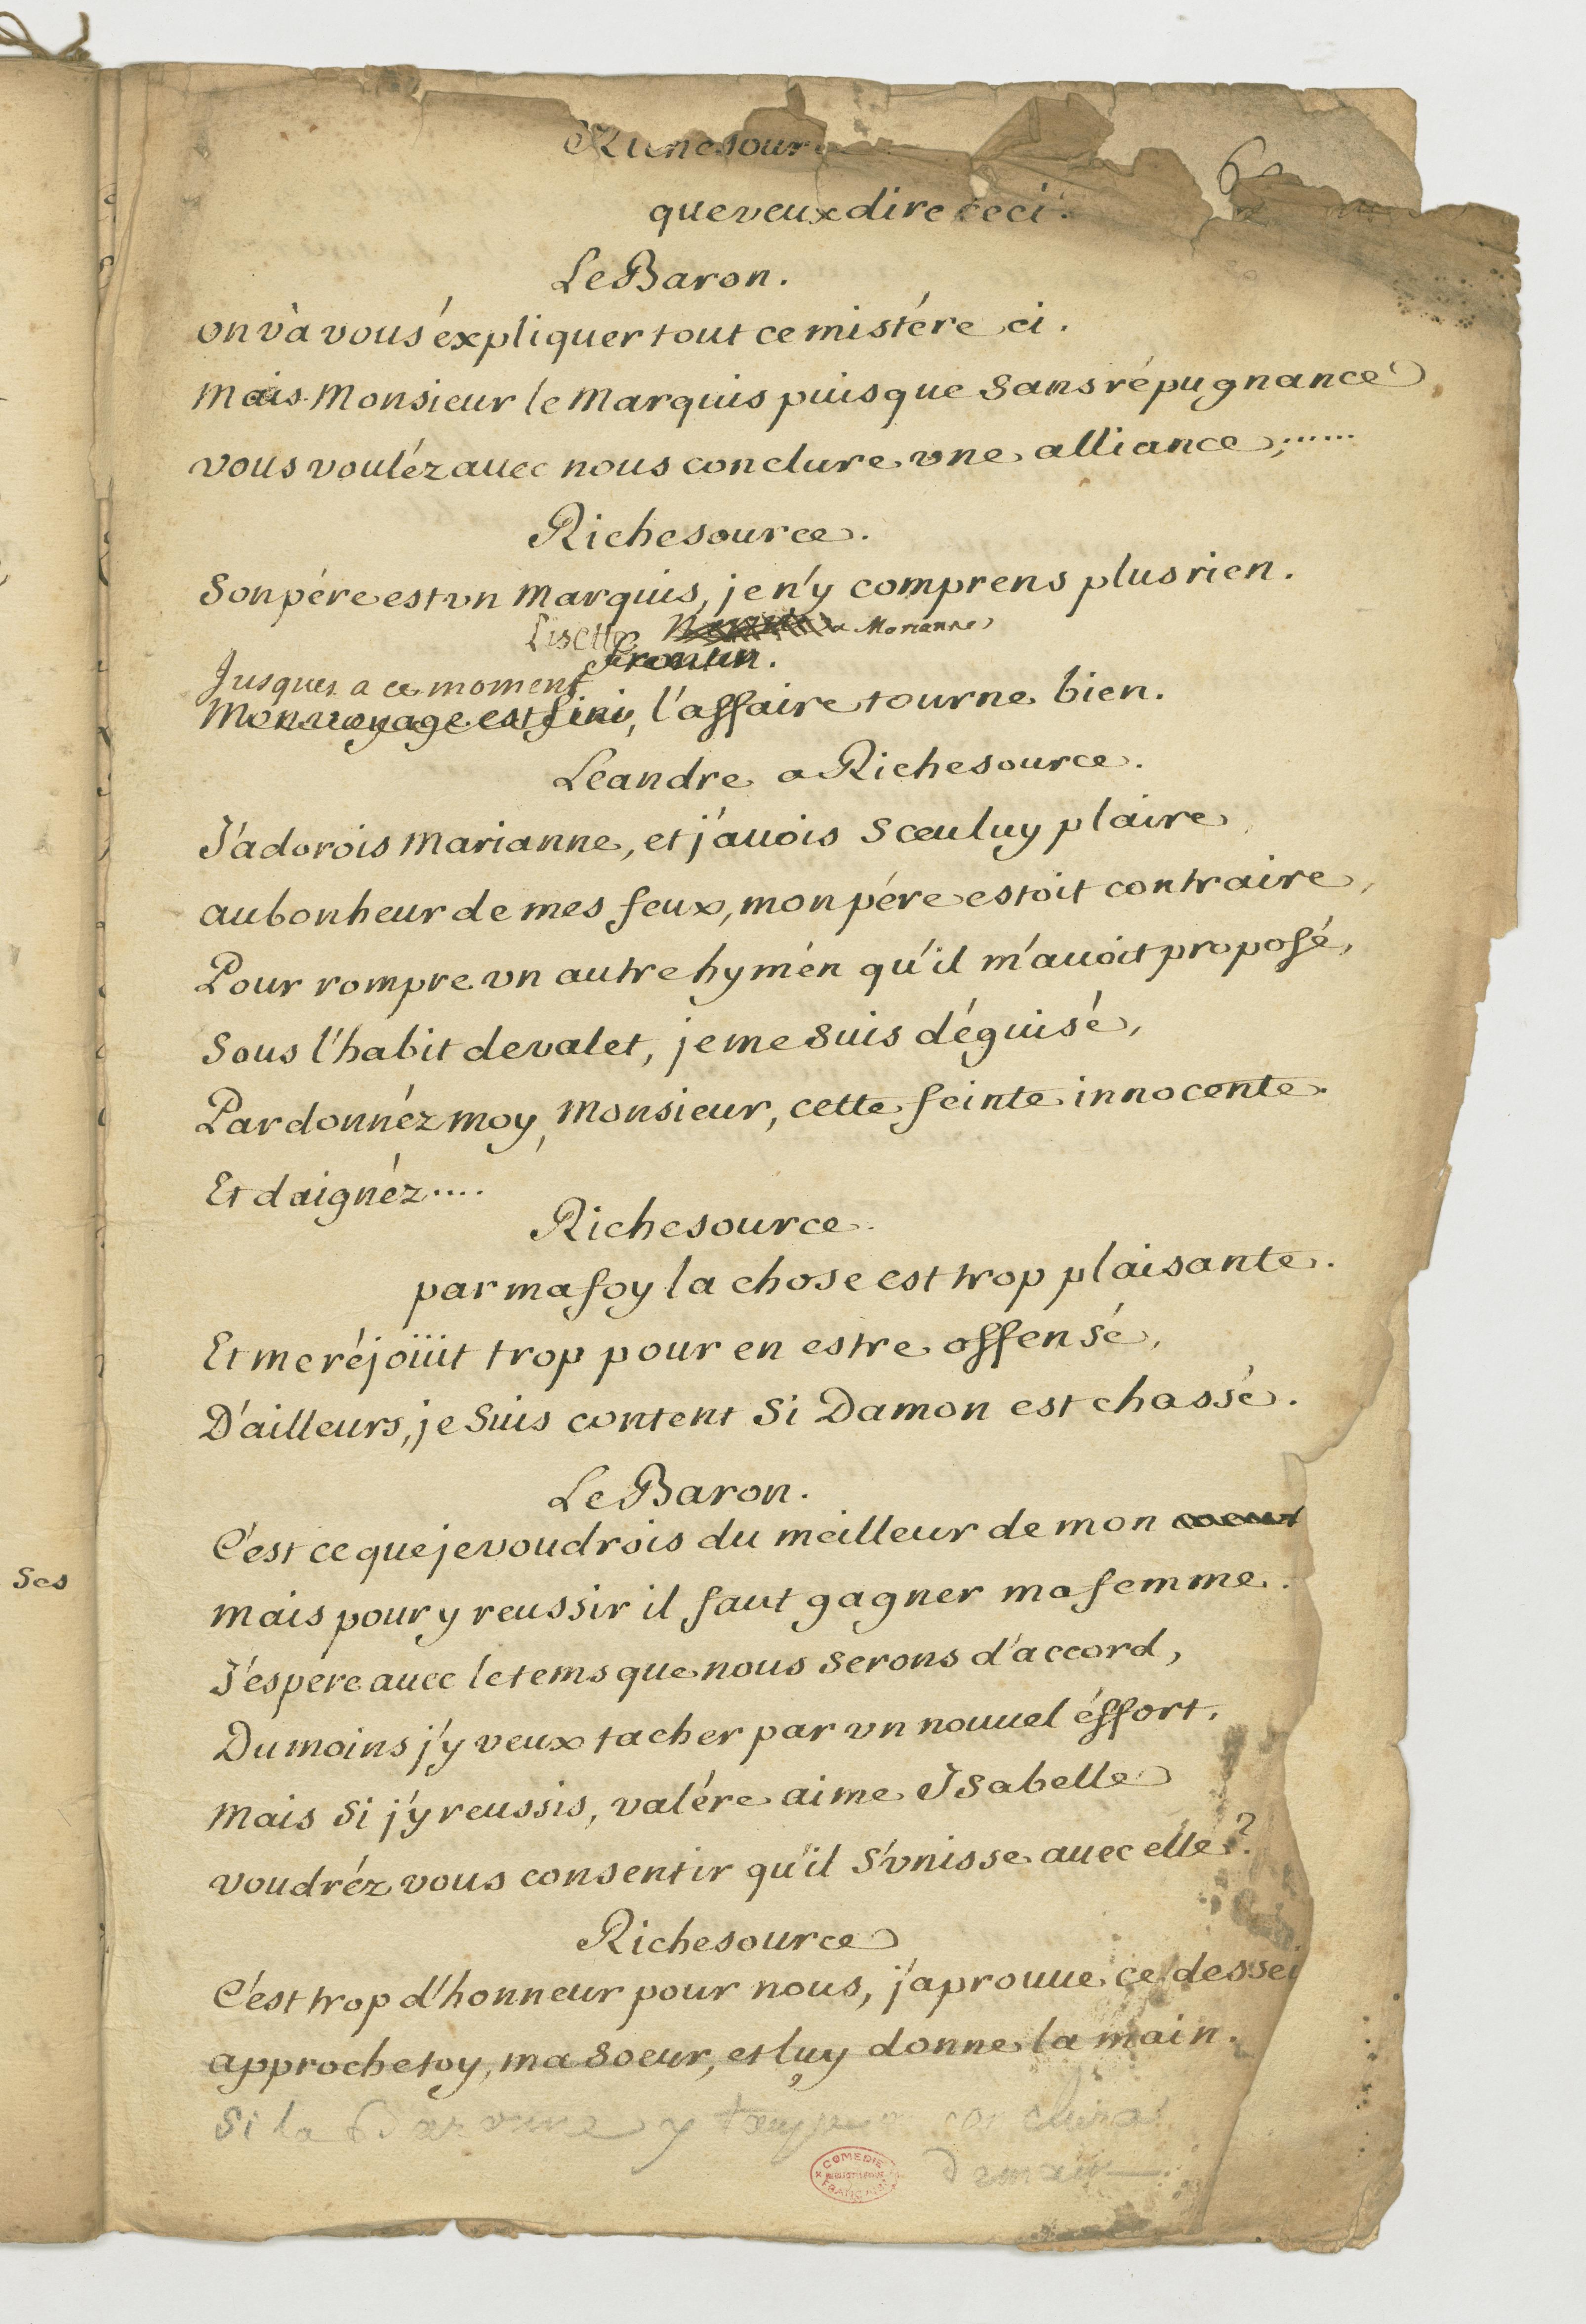 que veux dire ceci.
Le Baron.
on và vous éxpliquer tout ce mistére ci.
Mais Monsieur le Marquis puisque Sans répugnance
vous vouléz auec nous conclure vne alliance,......
Richesource.
Son pére est vn Marquis, je n'y comprens plus rien.
Lisette a Marianne
Frontin.
Jusques a ce moment
Mon voyage est fini, l'affaire tourne bien.
Leandre a Richesource.
J'adorois Marianne, et j'auois Sceu luy plaire
au bonheur de mes feux, mon pére estoit contraire,
Pour rompre vn autre hymén qu'il m'auoit proposé,
Sous l'habit de valet, je me Suis déguisé,
Pardonnéz moy, Monsieur, cette feinte innocente.
Et daignéz....
Richesource.
par ma foy la chose est trop plaisante.
Et me réjoüit trop pour en estre offensé,
D'ailleurs, je Suis content Si Damon est chassé.
Le Baron.
C'est ce que je voudrois du meilleur de mon
mais pour y reussir il faut gagner ma femme.
J'espere auec le tems que nous Serons d'accord,
Du moins j'y veux tacher par vn nouuel éffort.
Mais Si j'y reussis, valére aime Isabelle
voudréz vous consentir qu'il S'vnisse auec elle?
Richesource
C'est trop d'honneur pour nous, j'aprouue ce dessei
approche toy, ma Soeur, et luy donne la main.
Si la Baronne y
demain
COMEDIE
BIBLIOTHEQUE
FRANCAISE
Ses